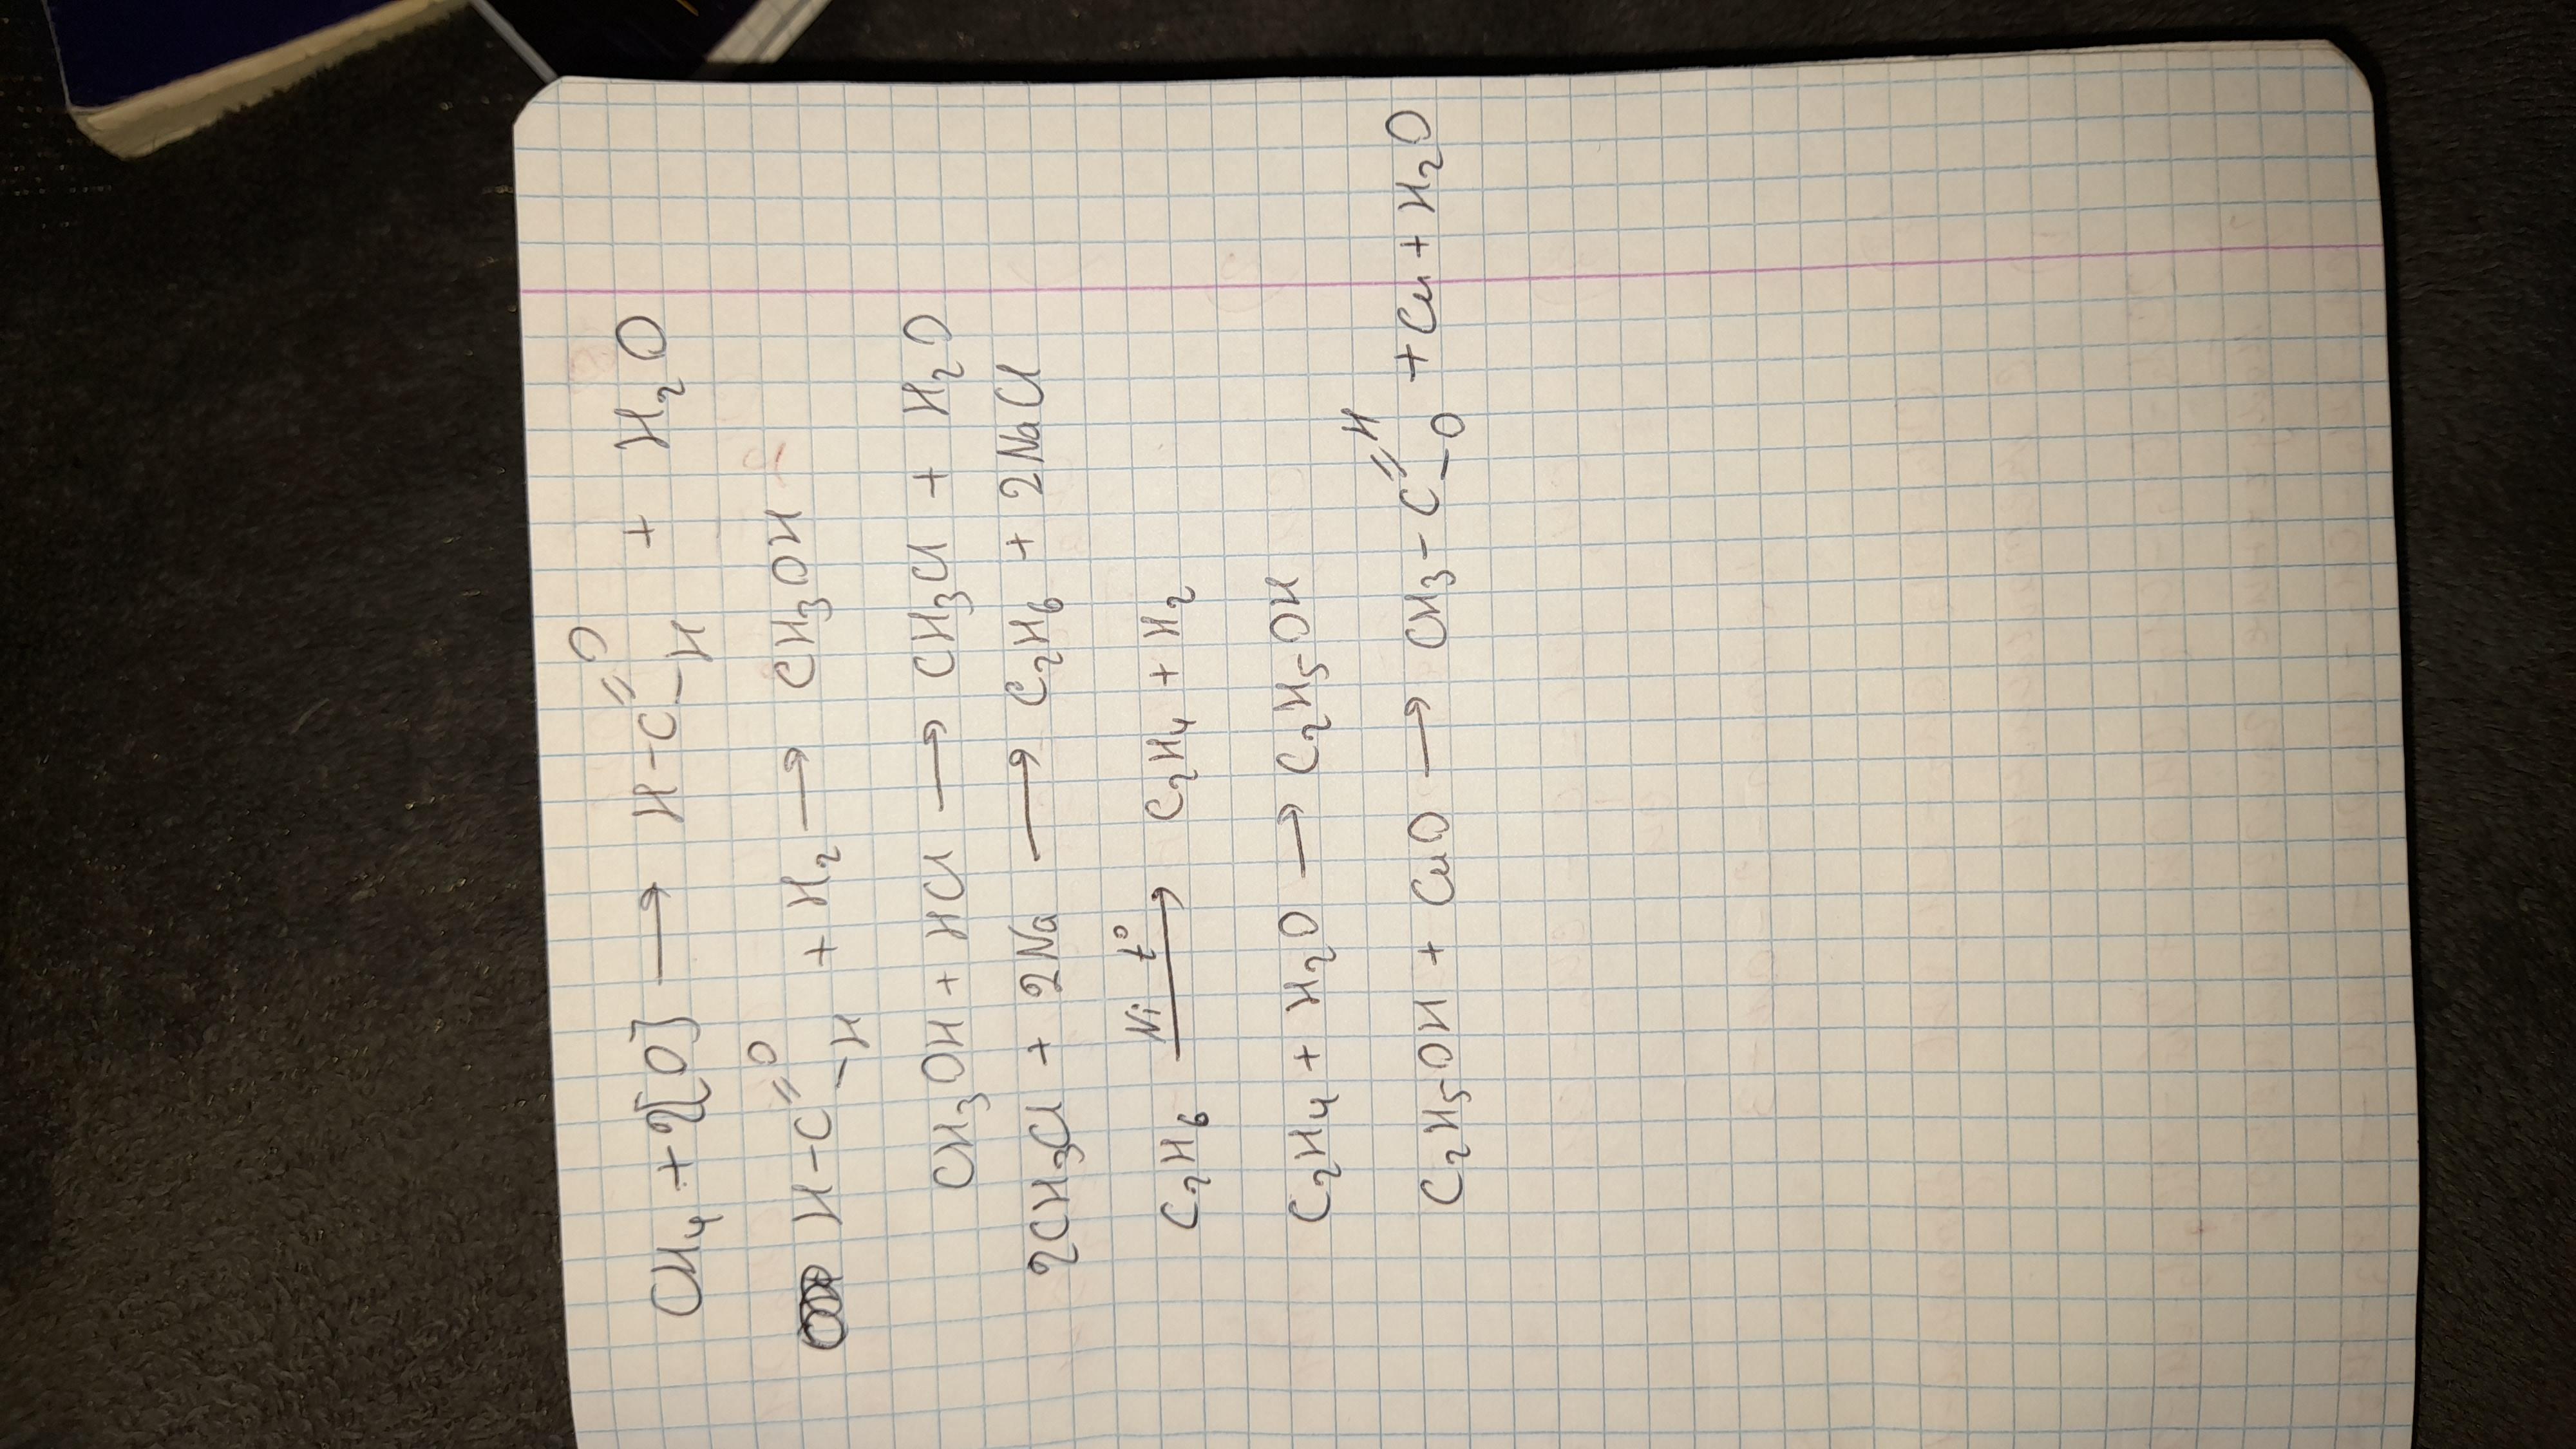 CH₄ + 2[O] ⟶ H-C(=O)(-H) + H₂O
H-C(=O)(-H) + H₂ ⟶ CH₃OH
CH₃OH + HCl ⟶ CH₃Cl + H₂O
2CH₃Cl + 2Na ⟶ C₂H₆ + 2NaCl
C₂H₆ —Ni t°⟶ C₂H₄ + H₂
C₂H₄ + H₂O ⟶ C₂H₅OH
C₂H₅OH + CuO ⟶ CH₃-C(=H)(-O) + Cu + H₂O